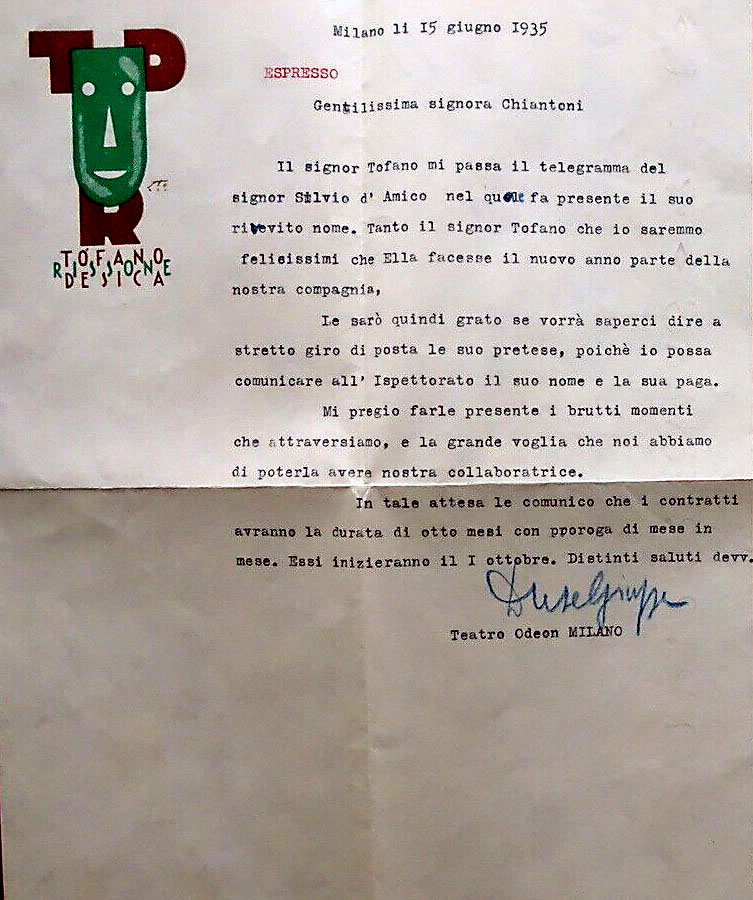 T D
R
TOFANO
RISSIONE
DE SICA
Milano li I5 giugno I935
ESPRESSO
Gentilissima signora Chiantoni
Il signor Tofano mi passa il telegramma del
signor Silvio d' Amico nel quale fa presente il suo
ricevito nome. Tanto il signor Tofano che io saremmo
felicissimi che Ella facesse il nuovo anno parte della
nostra compagnia,
Le sarò quindi grato se vorrà saperci dire a
stretto giro di posta le suo pretese, poichè io possa
comunicare all' Ispettorato il suo nome e la sua paga.
Mi pregio farle presente i brutti momenti
che attraversiamo, e la grande voglia che noi abbiamo
di poterla avere nostra collaboratrice.
In tale attesa le comunico che i contratti
avranno la durata di otto mesi con pporoga di mese in
mese. Essi inizieranno il I ottobre. Distinti saluti devv.
Teatro Odeon MILANO